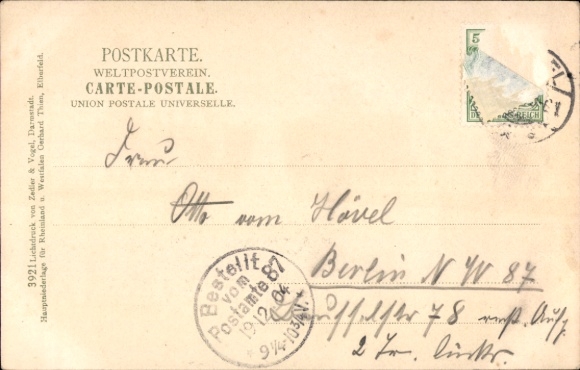 POSTKARTE.
WELTPOSTVEREIN.
CARTE-POSTALE.
UNION POSTALE UNIVERSELLE.
5
REICH
Frau
Otto vom Hövel
Berlin N W 87
78
2 Tr. links.
Bestellt
vom
Postamte 87
19 12 04
9 1/4-10 3/4 V.
3921 Lichtdruck von Zedler & Vogel, Darmstadt.
Hauptniederlage für Rheinland u. Westfalen Gerhard Thien, Elberfeld.